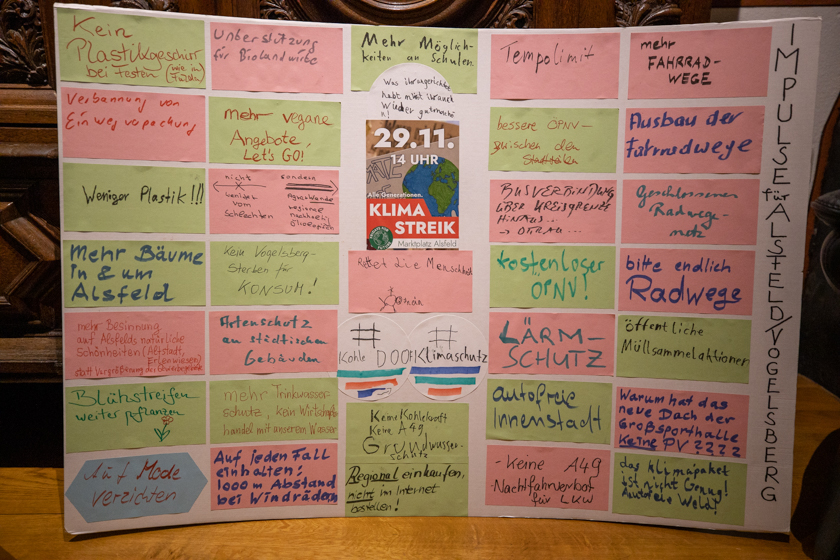 Kein
Plastikgeschirr
bei Festen (wie in
Fulda)
Verbannung von
Einwegverpackung
Weniger Plastik!!!
Mehr Bäume
in & um
Alsfeld
mehr Besinnung
auf Alsfelds natürliche
Schönheiten (Altstadt,
Erlenwiesen)
statt Vergrößerung der Gewerbegebiete
Blühstreifen
weiter pflanzen
Auf Mode
verzichten
Unterstützung
für Biolandwirte
mehr vegane
Angebote,
Let's GO!
nicht
sondern
weniger
vom
Schlechten
regional
nachhaltig
Kein Vogelsberg-
Sterben für
KONSUM!
Artenschutz
an städtischen
Gebäuden
mehr Trinkwasser-
schutz, kein Wirtschafts-
handel mit unserem Wasser
Auf jeden Fall
einhalten:
1000 m Abstand
bei Windrädern
Mehr Möglich-
keiten an Schulen.
Was ihr angerichtet
habt müsst ihr auch
wieder gutmachen
!
29.11.
14 UHR
Alle Generationen.
KLIMA
STREIK
Marktplatz Alsfeld
Rettet die Menschheit
#
Kohle DOOF
#
Klimaschutz
Keine Kohlekraft
Keine A49
Grundwasser-
schutz
Regional einkaufen,
nicht im Internet
bestellen!
Tempolimit
bessere ÖPNV-
zwischen den
Stadtteilen
BUSVERBINDUNG
ÜBER KREISGRENZE
HINAUS...
kostenloser
ÖPNV!
LÄRM-
SCHUTZ
autofreie
Innenstadt
- Keine A49
- Nachtfahrverbot
für LKW
mehr
FAHRRAD-
WEGE
Ausbau der
Fahrradwege
Geschlossenes
Radwege-
netz
bitte endlich
Radwege
öffentliche
Müllsammelaktionen
Warum hat das
neue Dach der
Großsporthalle
Keine PV ????
das Klimapaket
ist nicht Genug!
Autofreie Welt!
IMPULSE für ALSFELD/VOGELSBERG